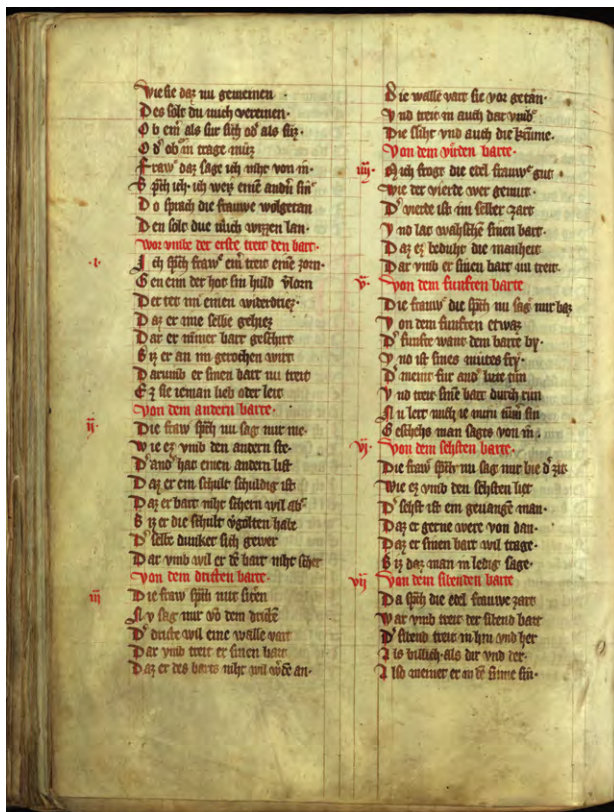 Wie sie daz nu gemeinen ·
Des solt du mich vereinen ·
Ob ein als sur sich od als siz ·
O d ob in trage muz
Fraw daz sage ich niht von in ·
S pch ich · ich weiz eine andn sin
Do sprach die frauwe wolgetan
Den solt due mich wizzen lan ·
Wor vmbe der erste treit den bart ·
·i· Ich spch fraw ein treit eine zorn ·
Gen eim der hot sin huld vlorn
Der tet im einen widerdriez ·
Daz er nie selbe gehiez
Dar er nimer bart geschirt
Biz er an im gerochen wirt
Darumb er sinen bart nu treit
Ez sie ieman lieb oder leit
Von dem andern barte ·
ii · Die fraw spch nu sag mir me ·
Wie ez vmb den andern ste ·
D and hat einen andern list
Daz er ein schult schuldig ist
Daz er bart niht schern wil ab
Biz er die schult vgolten habe
D selbe dunket sich gewer
Dar vmb wil er de bart niht scher
Von dem dritten barte ·
iii Die fraw spch mit siten
Ny sag mir vo dem dritte
D dritte wil eine walle vart
Dar vmb treit er sinen bart
Daz er des barts niht wil wde an ·
Die walle vart sie vor getan ·
Vnd treit in auch dar vmb
Die sliht vnd auch die krumme ·
Von dem virden barte ·
iiii · Mich fragt die edel frauwe gut
Wie der vierde wer gemut ·
D vierde ist im selber zart
Vnd lat wahsche sinen bart ·
Daz ez beduht die manheit
Dar vmb er sinen bart nu treit ·
v · Von dem funften barte
Die frauw die spch nu sag mir baz
Von dem funften etwaz
D funfte want dem barte by ·
Vnd ist sines mutes fry ·
D meint fur and lute tun
Vnd treit sine bart durch run
Nu lert mich ie mein tum sin
Geschehs man sagts von im ·
vi · Von dem sehsten barte ·
Die fraw spch nu sag mir bie d zit
Wie ez vmb den sehsten lit
D sehst ist ein geuange man ·
Daz er gerne were von dan ·
Daz er sinen bart wil trage ·
Biz daz man in ledig sage ·
vii Von dem sibenden barte
Da spch die edel frauwe zart
War vmb treit der sibend bart
D sibend treit in hin vnd her
Als billich als dir vnd der ·
Also meinet er in de sinne sin ·